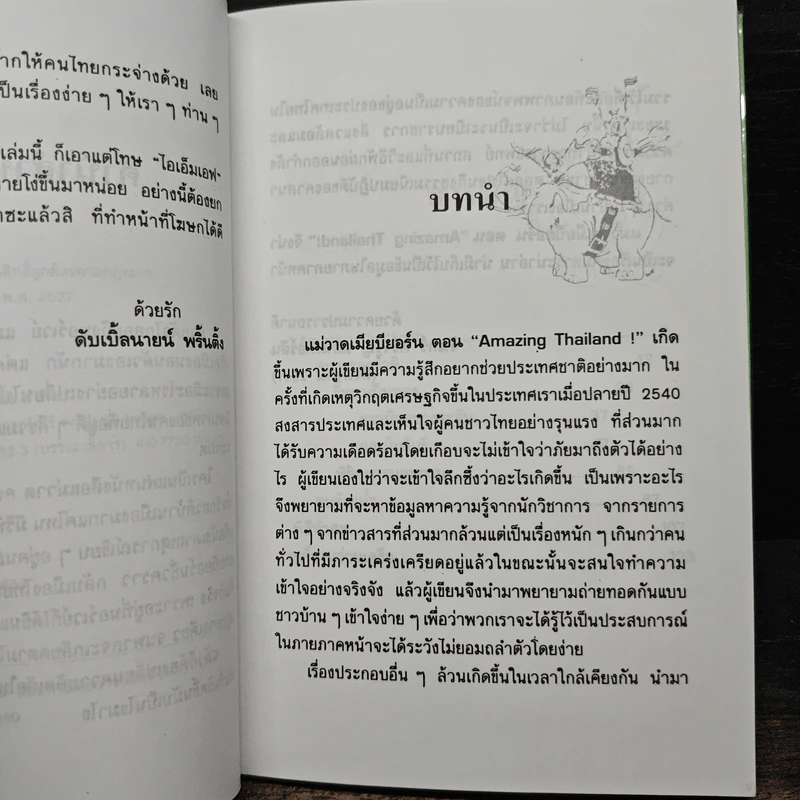 ากให้คนไทยกระจ่างด้วย เลย
ป็นเรื่องง่าย ๆ ให้เรา ๆ ท่าน ๆ
เล่มนี้ ก็เอาแต่โทษ "ไอเอ็มเอฟ"
ายโง่ขึ้นมาหน่อย อย่างนี้ต้องยก
าซะแล้วสิ ที่ทำหน้าที่โฆษกได้ดี
ด้วยรัก
ดับเบิ้ลนายน์ พริ้นติ้ง
บทนำ
แม่วาดเมียบียอร์น ตอน "Amazing Thailand !" เกิด
ขึ้นเพราะผู้เขียนมีความรู้สึกอยากช่วยประเทศชาติอย่างมาก ใน
ครั้งที่เกิดเหตุวิกฤตเศรษฐกิจขึ้นในประเทศเราเมื่อปลายปี 2540
สงสารประเทศและเห็นใจผู้คนชาวไทยอย่างรุนแรง ที่ส่วนมาก
ได้รับความเดือดร้อนโดยเกือบจะไม่เข้าใจว่าภัยมาถึงตัวได้อย่าง
ไร ผู้เขียนเองใช่ว่าจะเข้าใจลึกซึ้งว่าอะไรเกิดขึ้น เป็นเพราะอะไร
จึงพยายามที่จะหาข้อมูลหาความรู้จากนักวิชาการ จากรายการ
ต่าง ๆ จากข่าวสารที่ส่วนมากล้วนแต่เป็นเรื่องหนัก ๆ เกินกว่าคน
ทั่วไปที่มีภาระเคร่งเครียดอยู่แล้วในขณะนั้นจะสนใจทำความ
เข้าใจอย่างจริงจัง แล้วผู้เขียนจึงนำมาพยายามถ่ายทอดกันแบบ
ชาวบ้าน ๆ เข้าใจง่าย ๆ เพื่อว่าพวกเราจะได้รู้ไว้เป็นประสบการณ์
ในภายภาคหน้าจะได้ระวังไม่ยอมถลำตัวโดยง่าย
เรื่องประกอบอื่น ๆ ล้วนเกิดขึ้นในเวลาใกล้เคียงกัน นำมา